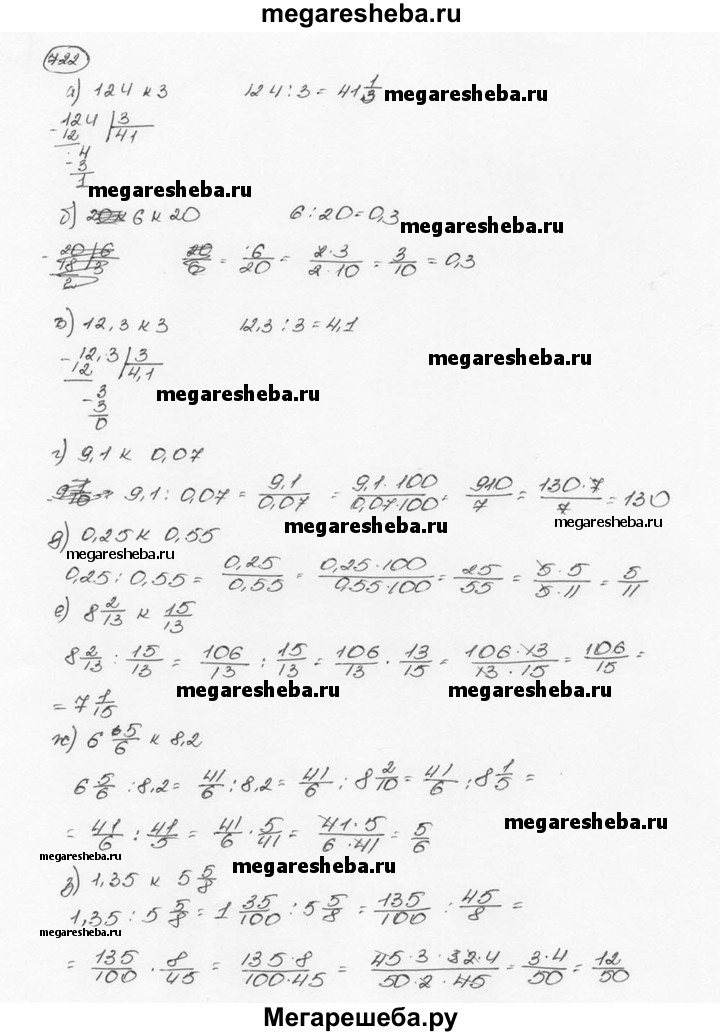 megaresheba.ru
722
а) 124 к 3 124 : 3 = 41 1/3 megaresheba.ru
- 124 | 3
12 | 41
4
- 3
1 megaresheba.ru
б) 6 к 20 6 : 20 = 0,3 megaresheba.ru
- 20 | 6
18 | 3
2
20/6 = 6/20 = 2·3/2·10 = 3/10 = 0,3
в) 12,3 к 3 12,3 : 3 = 4,1
- 12,3 | 3 megaresheba.ru
12 | 4,1
megaresheba.ru
- 3
3
0
г) 9,1 к 0,07
9,1 : 0,07 = 9,1/0,07 = 9,1·100/0,07·100 = 910/7 = 130·7/7 = 130
megaresheba.ru megaresheba.ru
д) 0,25 к 0,55
megaresheba.ru
0,25 : 0,55 = 0,25/0,55 = 0,25·100/0,55·100 = 25/55 = 5·5/5·11 = 5/11
е) 8 2/13 к 15/13
8 2/13 : 15/13 = 106/13 : 15/13 = 106/13 · 13/15 = 106·13/13·15 = 106/15 =
= 7 1/15 megaresheba.ru megaresheba.ru
ж) 6 5/6 к 8,2
6 5/6 : 8,2 = 41/6 : 8,2 = 41/6 : 8 2/10 = 41/6 : 8 1/5 =
= 41/6 : 41/5 = 41/6 · 5/41 = 41·5/6·41 = 5/6 megaresheba.ru
megaresheba.ru
з) 1,35 к 5 5/8 megaresheba.ru
1,35 : 5 5/8 = 1 35/100 : 5 5/8 = 135/100 : 45/8 =
megaresheba.ru
= 135/100 · 8/45 = 135·8/100·45 = 45·3·2·4/50·2·45 = 3·4/50 = 12/50
Мегарешеба.ру